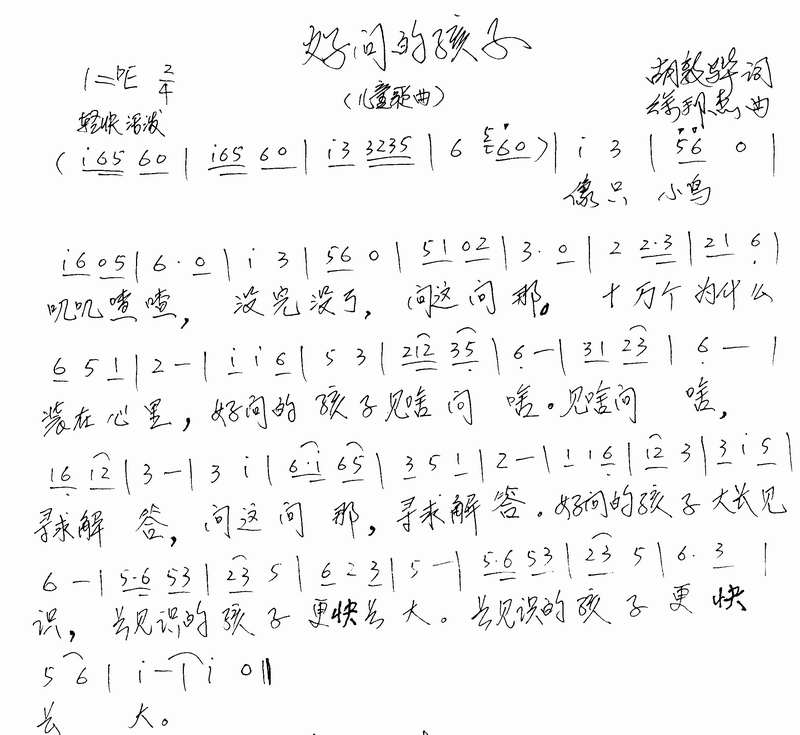 好问的孩子
1=♭E 2/4
(儿童歌曲)
胡敦骅 词
轻快 活泼
徐邦杰 曲
( i65 60 | i65 60 | i3 3235 | 6 560 ) | i 3 | 56 0 |
像只 小鸟
i605 | 6· 0 | i 3 | 56 0 | 5102 | 3· 0 | 2 2·3 | 21 6 |
叽叽喳喳, 没完没了, 问这问那。 十万个为什么
6 5 1 | 2 - | i i 6 | 5 3 | 212 35 | 6 - | 31 23 | 6 - |
装在心里, 好问的孩子见啥问 啥。见啥问 啥,
16 12 | 3 - | 3 i | 6·i 65 | 3 5 1 | 2 - | 1 16 | 12 3 | 3 i 5 |
寻求解 答, 问这问 那, 寻求解 答。好问的孩子大长见
6 - | 5·6 53 | 23 5 | 6 2 3 | 5 - | 5·6 53 | 23 5 | 6· 3 |
识, 长见识的孩子更快长大。长见识的孩子更 快
5 6 | i - | i 0 ‖
长 大。